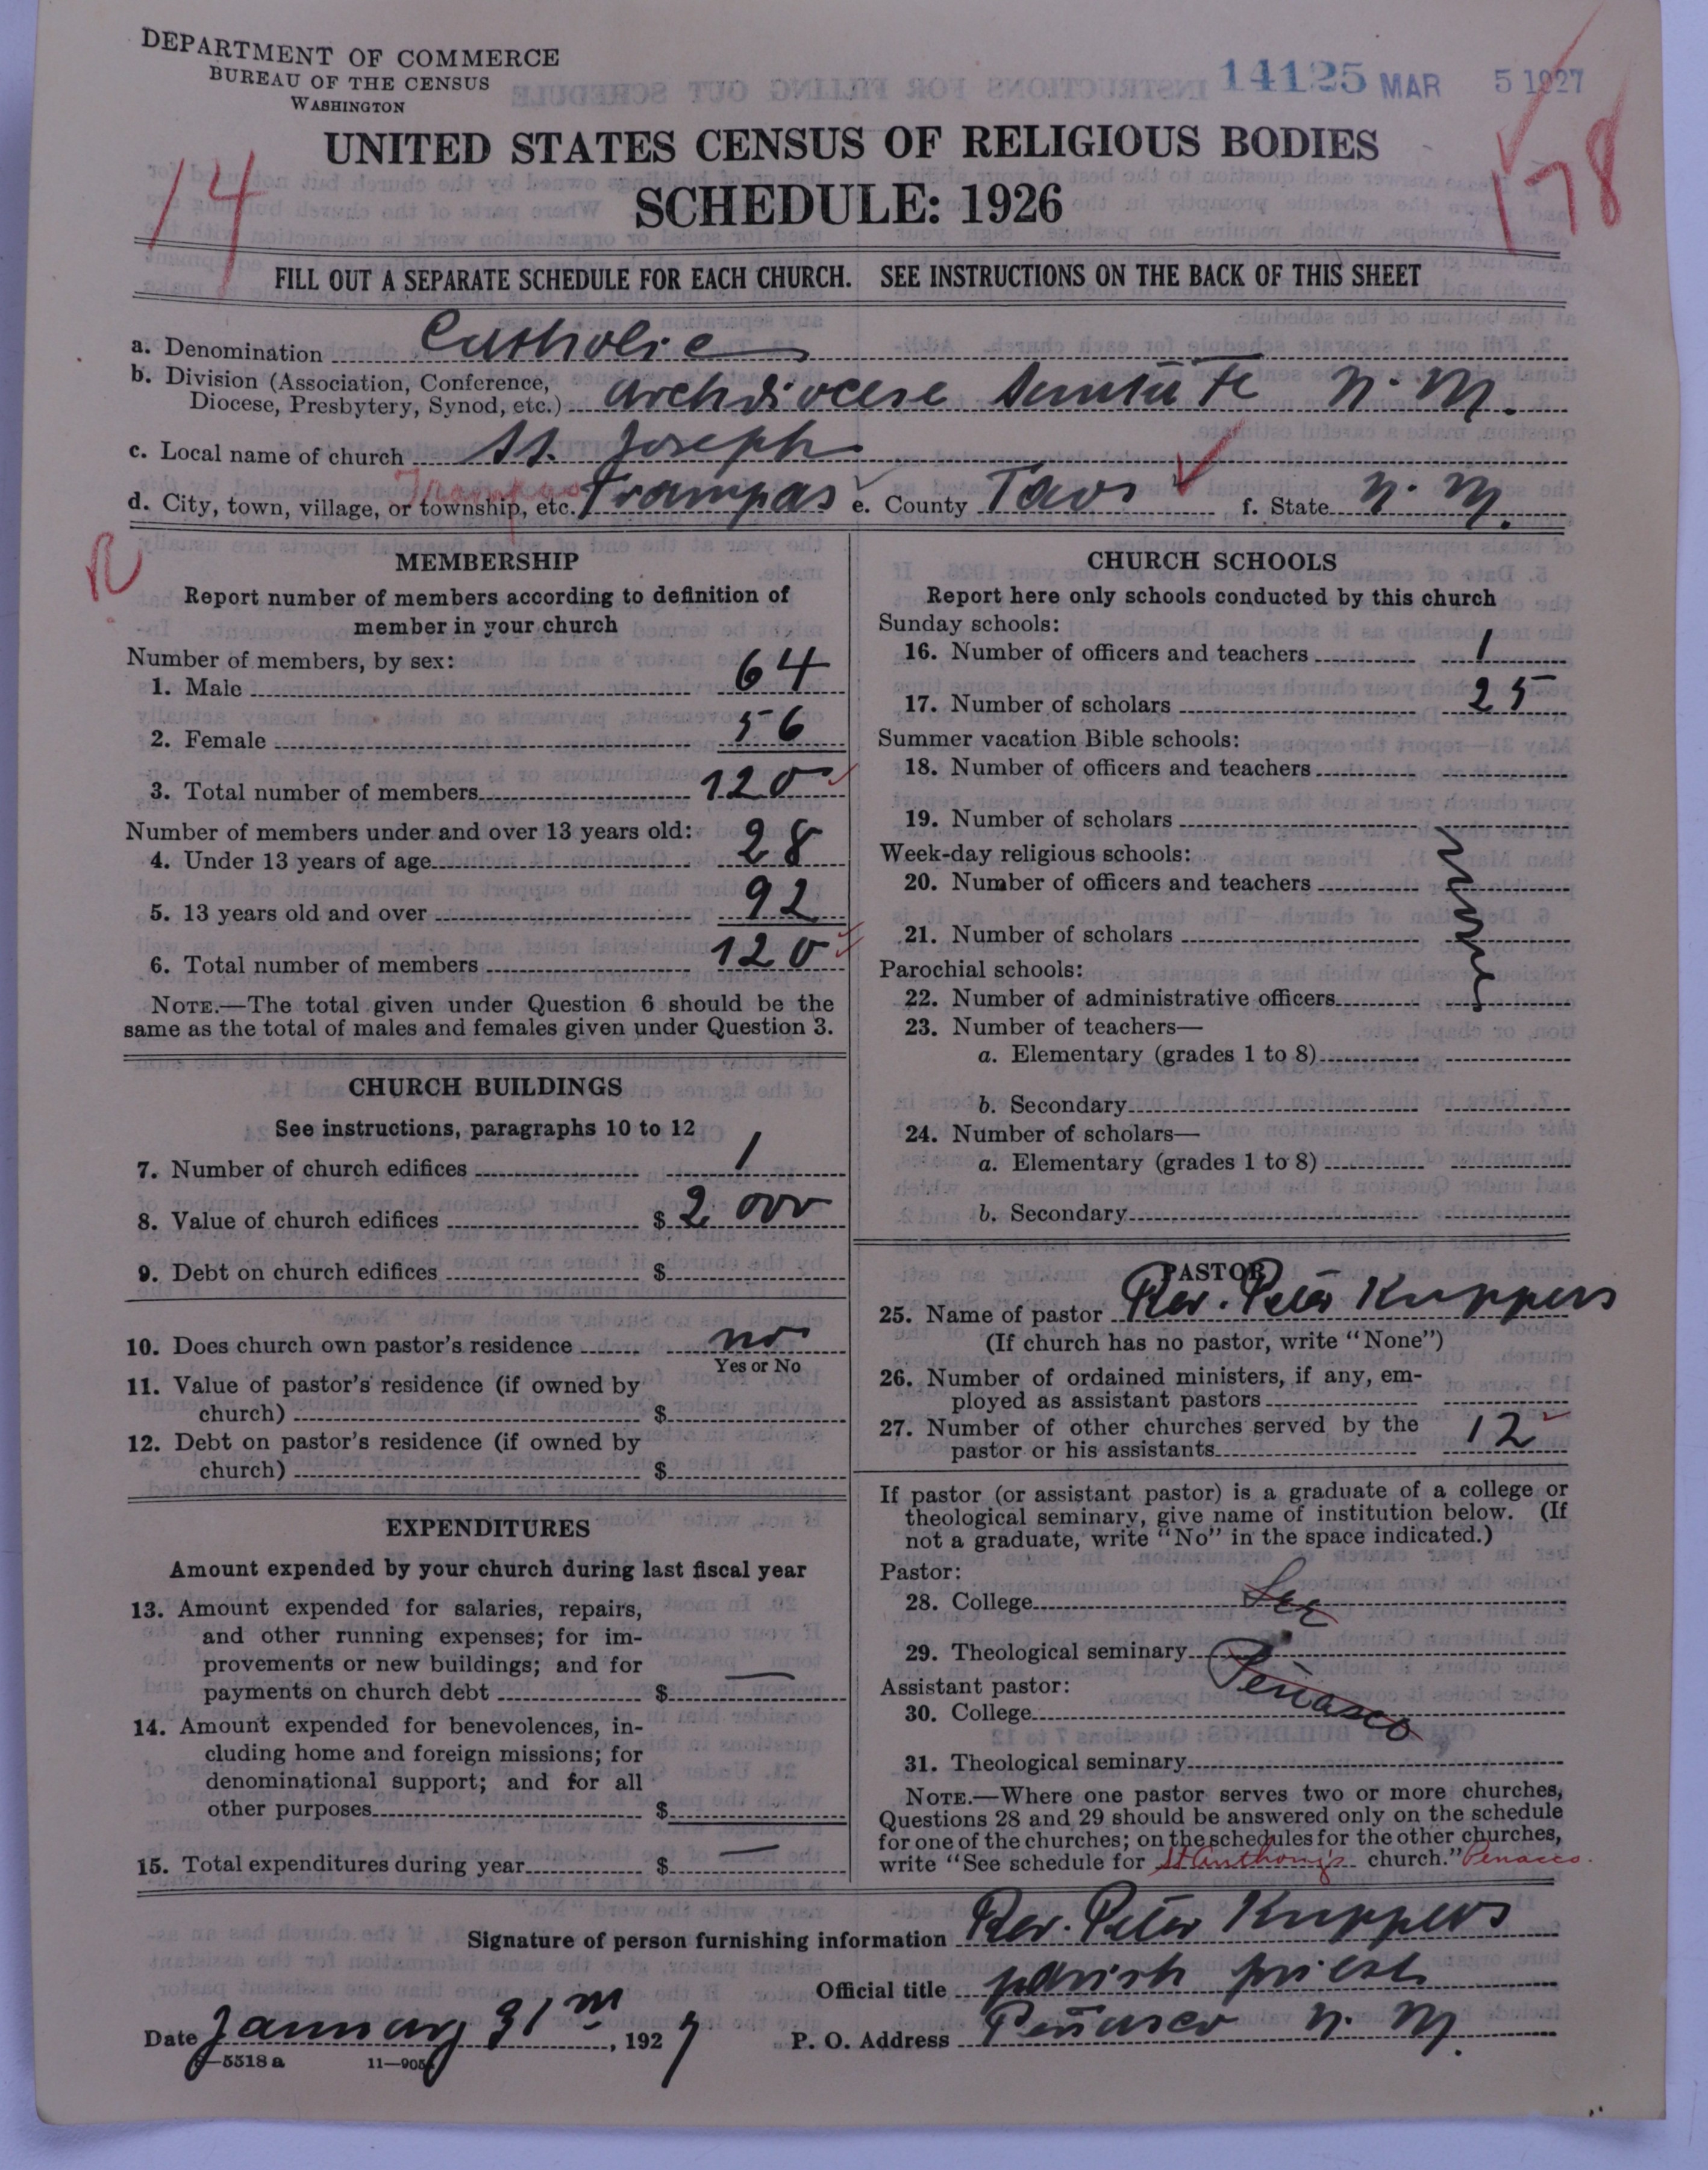 DEPARTMENT OF COMMERCE
BUREAU OF THE CENSUS
WASHINGTON
14125 MAR 5 1927
UNITED STATES CENSUS OF RELIGIOUS BODIES
SCHEDULE: 1926
14
178
FILL OUT A SEPARATE SCHEDULE FOR EACH CHURCH. SEE INSTRUCTIONS ON THE BACK OF THIS SHEET
a. Denomination Catholic
b. Division (Association, Conference,
Diocese, Presbytery, Synod, etc.) Archdiocese Santa Fe N. M.
c. Local name of church St. Joseph
Trampas
d. City, town, village, or township, etc. Trampas e. County Taos f. State N. M.
R
MEMBERSHIP
Report number of members according to definition of
member in your church
Number of members, by sex:
1. Male 64
2. Female 56
3. Total number of members 120
Number of members under and over 13 years old:
4. Under 13 years of age 28
5. 13 years old and over 92
6. Total number of members 120
NOTE.—The total given under Question 6 should be the
same as the total of males and females given under Question 3.
CHURCH BUILDINGS
See instructions, paragraphs 10 to 12
7. Number of church edifices 1
8. Value of church edifices $ 2 000
9. Debt on church edifices $
10. Does church own pastor's residence no
Yes or No
11. Value of pastor's residence (if owned by
church) $
12. Debt on pastor's residence (if owned by
church) $
EXPENDITURES
Amount expended by your church during last fiscal year
13. Amount expended for salaries, repairs,
and other running expenses; for im-
provements or new buildings; and for
payments on church debt $ —
14. Amount expended for benevolences, in-
cluding home and foreign missions; for
denominational support; and for all
other purposes $
15. Total expenditures during year $ —
CHURCH SCHOOLS
Report here only schools conducted by this church
Sunday schools:
16. Number of officers and teachers 1
17. Number of scholars 25
Summer vacation Bible schools:
18. Number of officers and teachers
19. Number of scholars
Week-day religious schools:
20. Number of officers and teachers
none
21. Number of scholars
Parochial schools:
22. Number of administrative officers
23. Number of teachers—
a. Elementary (grades 1 to 8)
b. Secondary
24. Number of scholars—
a. Elementary (grades 1 to 8)
b. Secondary
PASTOR
25. Name of pastor Rev. Peter Kuppers
(If church has no pastor, write "None")
26. Number of ordained ministers, if any, em-
ployed as assistant pastors
27. Number of other churches served by the
pastor or his assistants 12
If pastor (or assistant pastor) is a graduate of a college or
theological seminary, give name of institution below. (If
not a graduate, write "No" in the space indicated.)
Pastor:
28. College See
29. Theological seminary
Peñasco
Assistant pastor:
30. College
31. Theological seminary
NOTE.—Where one pastor serves two or more churches,
Questions 28 and 29 should be answered only on the schedule
for one of the churches; on the schedules for the other churches,
write "See schedule for St Anthony's church." Penasco
Signature of person furnishing information Rev. Peter Kuppers
Official title parish priest
Date January 31st, 1927 P. O. Address Peñasco N. M.
8—5518 a 11—905